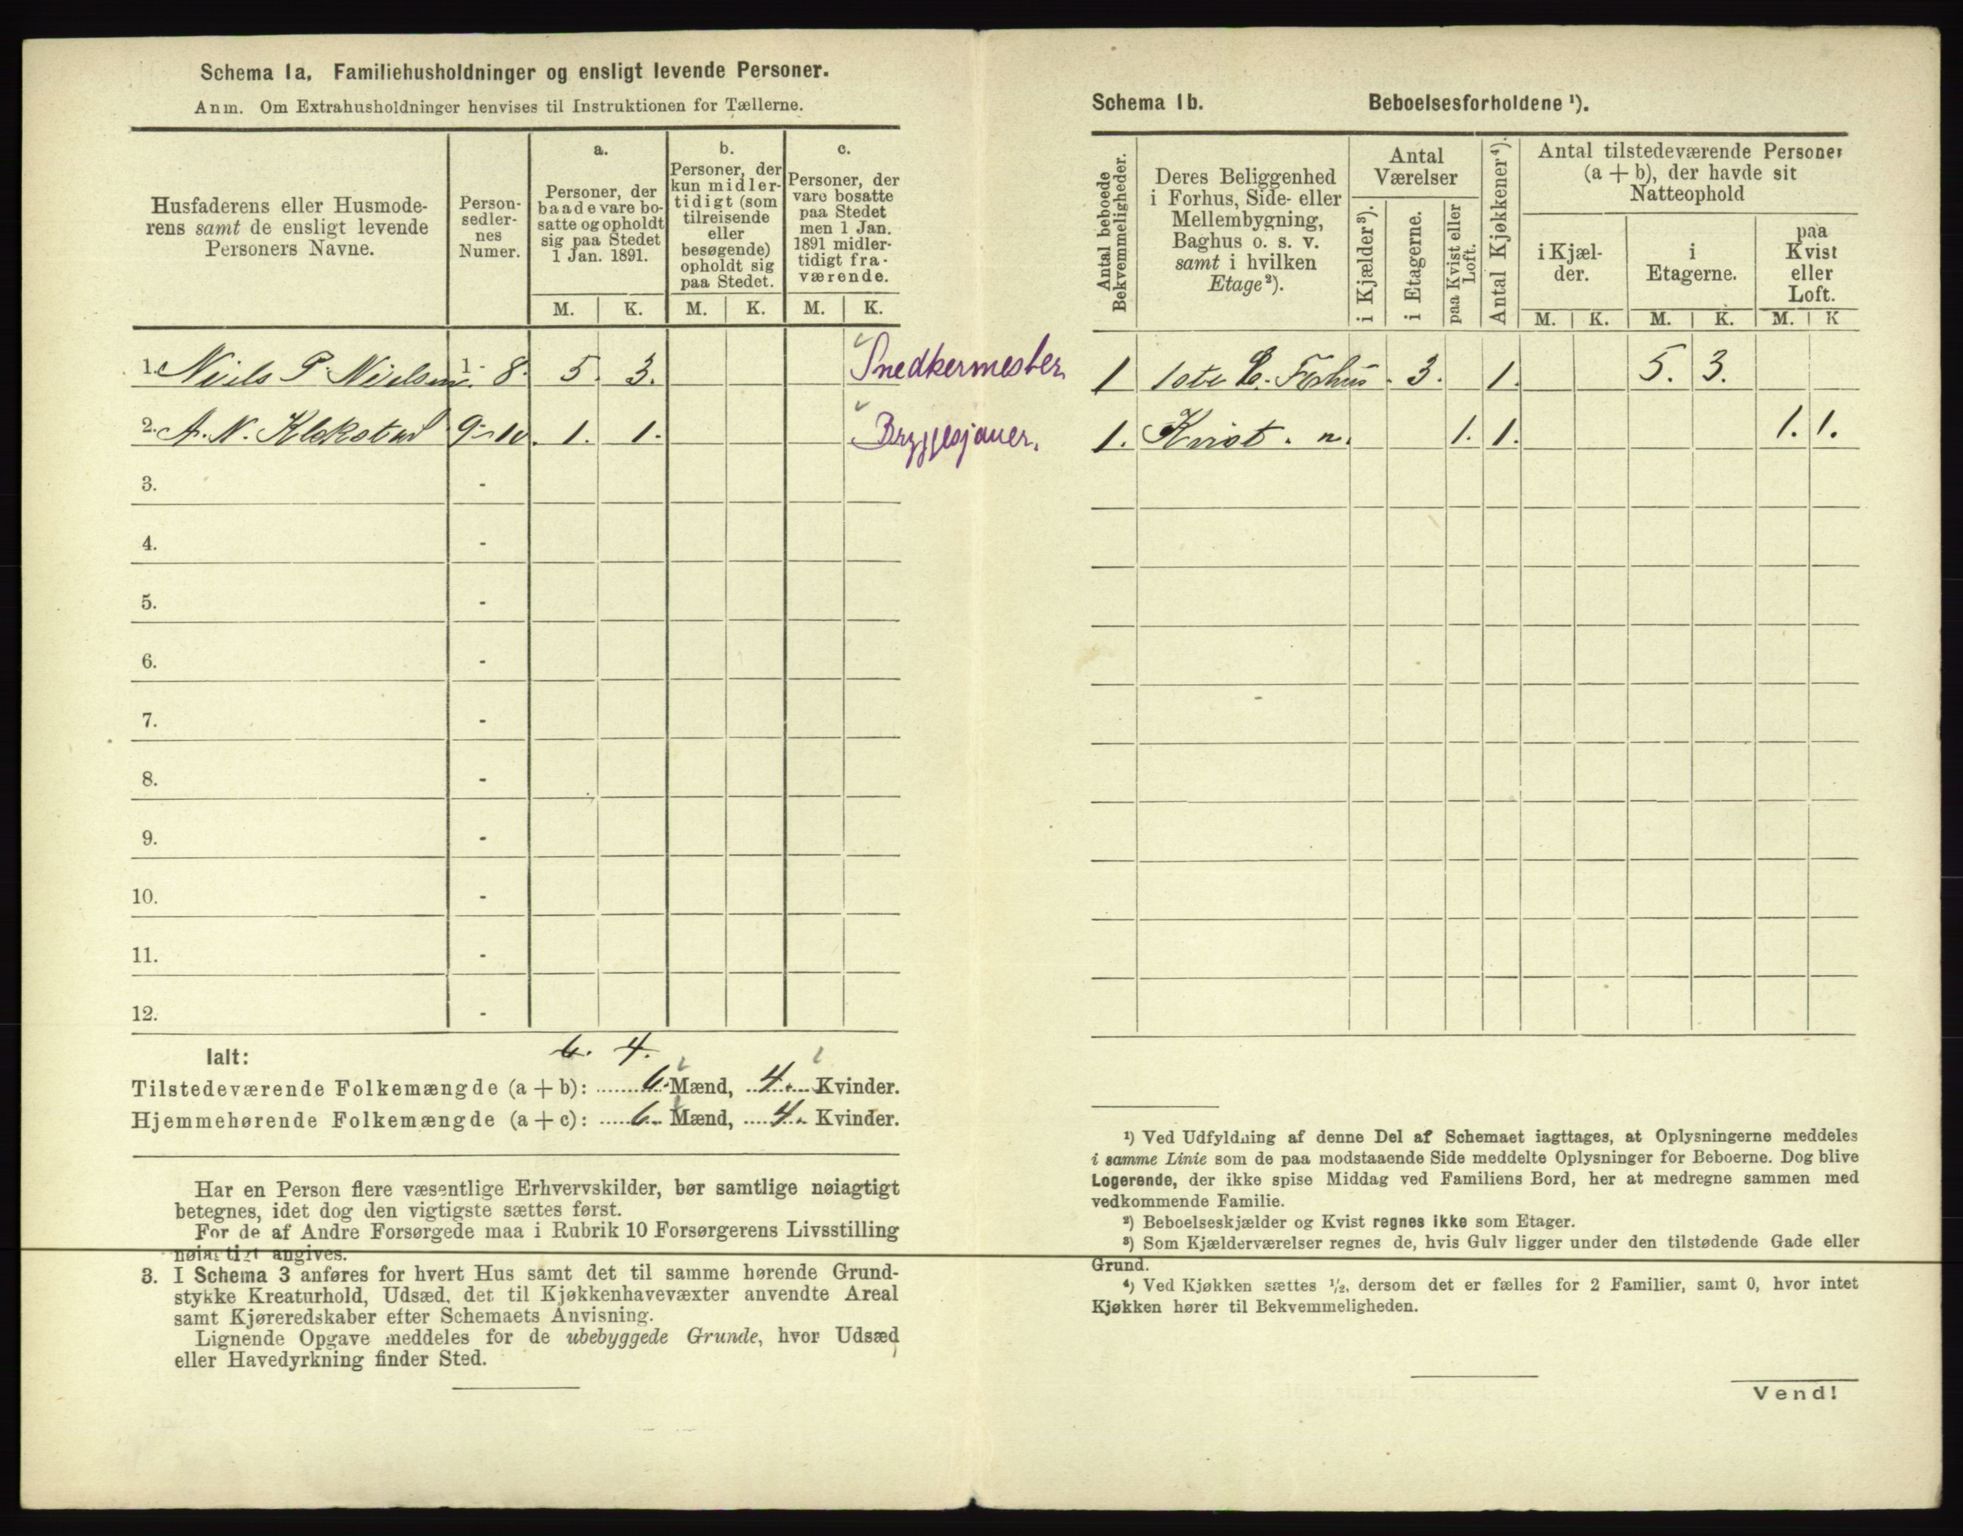 Schema 1a. Familiehusholdninger og ensligt levende Personer.
Anm. Om Extrahusholdninger henvises til Instruktionen for Tællerne.
Husfaderens eller Husmode-
rens samt de ensligt levende
Personers Navne.
Person-
sedler-
nes
Numer.
a.
Personer, der
baade vare bo-
satte og opholdt
sig paa Stedet
1 Jan. 1891.
b.
Personer, der
kun midler-
tidigt (som
tilreisende
eller
besøgende)
opholdt sig
paa Stedet.
c.
Personer, der
vare bosatte
paa Stedet
men 1 Jan.
1891 midler-
tidigt fra-
værende.
M. K. M. K. M. K.
1. Niels P. Nielsen 1 - 8. 5. 3. Snedkermester.
2. A. N. Klekstad 9 - 10. 1. 1. Bryggesjauer.
3. -
4. -
5. -
6. -
7. -
8. -
9. -
10. -
11. -
12. -
Ialt: 6. 4.
Tilstedeværende Folkemængde (a + b): 6. Mænd, 4. Kvinder.
Hjemmehørende Folkemængde (a + c): 6. Mænd, 4. Kvinder.
Har en Person flere væsentlige Erhvervskilder, bør samtlige nøiagtigt
betegnes, idet dog den vigtigste sættes først.
For de af Andre Forsørgede maa i Rubrik 10 Forsørgerens Livsstilling
nøiagtigt angives.
3. I Schema 3 anføres for hvert Hus samt det til samme hørende Grund-
stykke Kreaturhold, Udsæd, det til Kjøkkenhavevæxter anvendte Areal
samt Kjøreredskaber efter Schemaets Anvisning.
Lignende Opgave meddeles for de ubebyggede Grunde, hvor Udsæd
eller Havedyrkning finder Sted.
Schema 1b. Beboelsesforholdene ¹).
Antal beboede
Bekvemmeligheder.
Deres Beliggenhed
i Forhus, Side- eller
Mellembygning,
Baghus o. s. v.
samt i hvilken
Etage ²).
Antal
Værelser
i Kjælder ³).
i Etagerne.
paa Kvist eller
Loft.
Antal Kjøkkener ⁴).
Antal tilstedeværende Personer
(a + b), der havde sit
Natteophold
i Kjæl-
der.
i
Etagerne.
paa
Kvist
eller
Loft.
M. K. M. K. M. K
1 1ste E. Forhus. 3. 1. 5. 3.
1. Kvist. n. 1. 1. 1. 1.
¹) Ved Udfyldning af denne Del af Schemaet iagttages, at Oplysningerne meddeles
i samme Linie som de paa modstaaende Side meddelte Oplysninger for Beboerne. Dog blive
Logerende, der ikke spise Middag ved Familiens Bord, her at medregne sammen med
vedkommende Familie.
²) Beboelseskjælder og Kvist regnes ikke som Etager.
³) Som Kjælderværelser regnes de, hvis Gulv ligger under den tilstødende Gade eller
Grund.
⁴) Ved Kjøkken sættes ½, dersom det er fælles for 2 Familier, samt 0, hvor intet
Kjøkken hører til Bekvemmeligheden.
Vend!